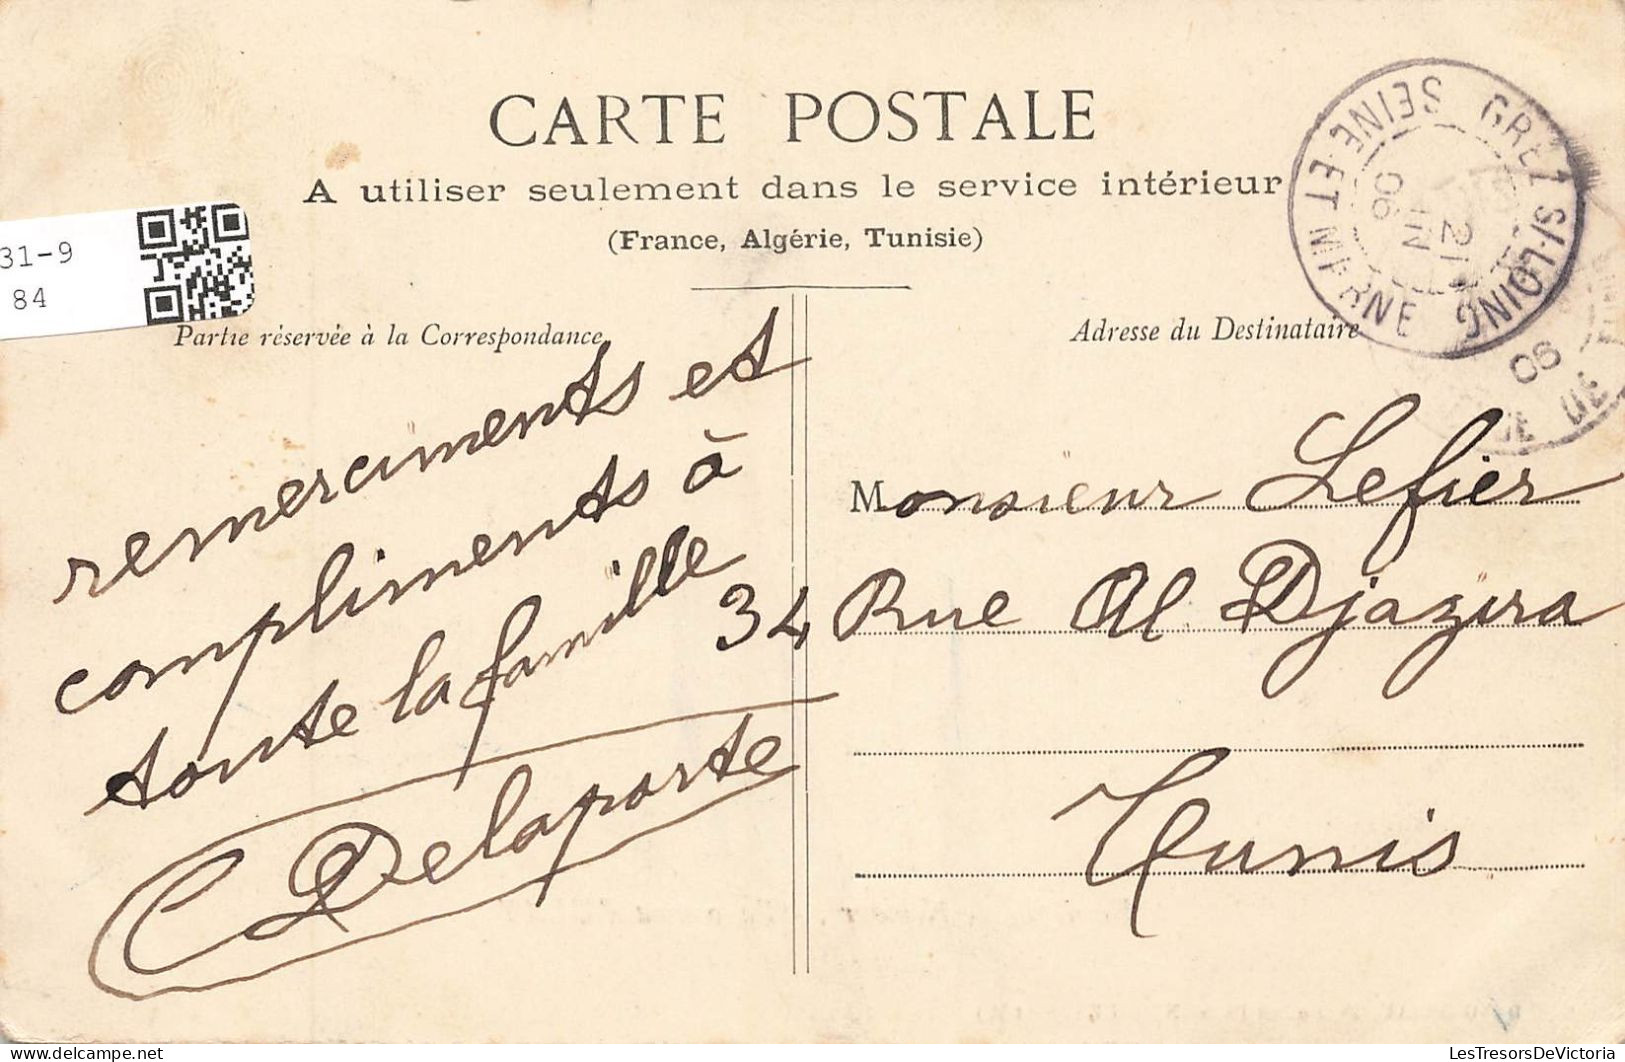 CARTE POSTALE
A utiliser seulement dans le service intérieur
(France, Algérie, Tunisie)
31-9
84
Partie réservée à la Correspondance
remerciments et
compliments à
toute la famille
C Delaporte
Adresse du Destinataire
Monsieur Lefier
34 Rue Al Djazira
Tunis
GREZ S/-LOING
SEINE ET MARNE
21
JUIN
06
06
DE
LesTresorsDeVictoria